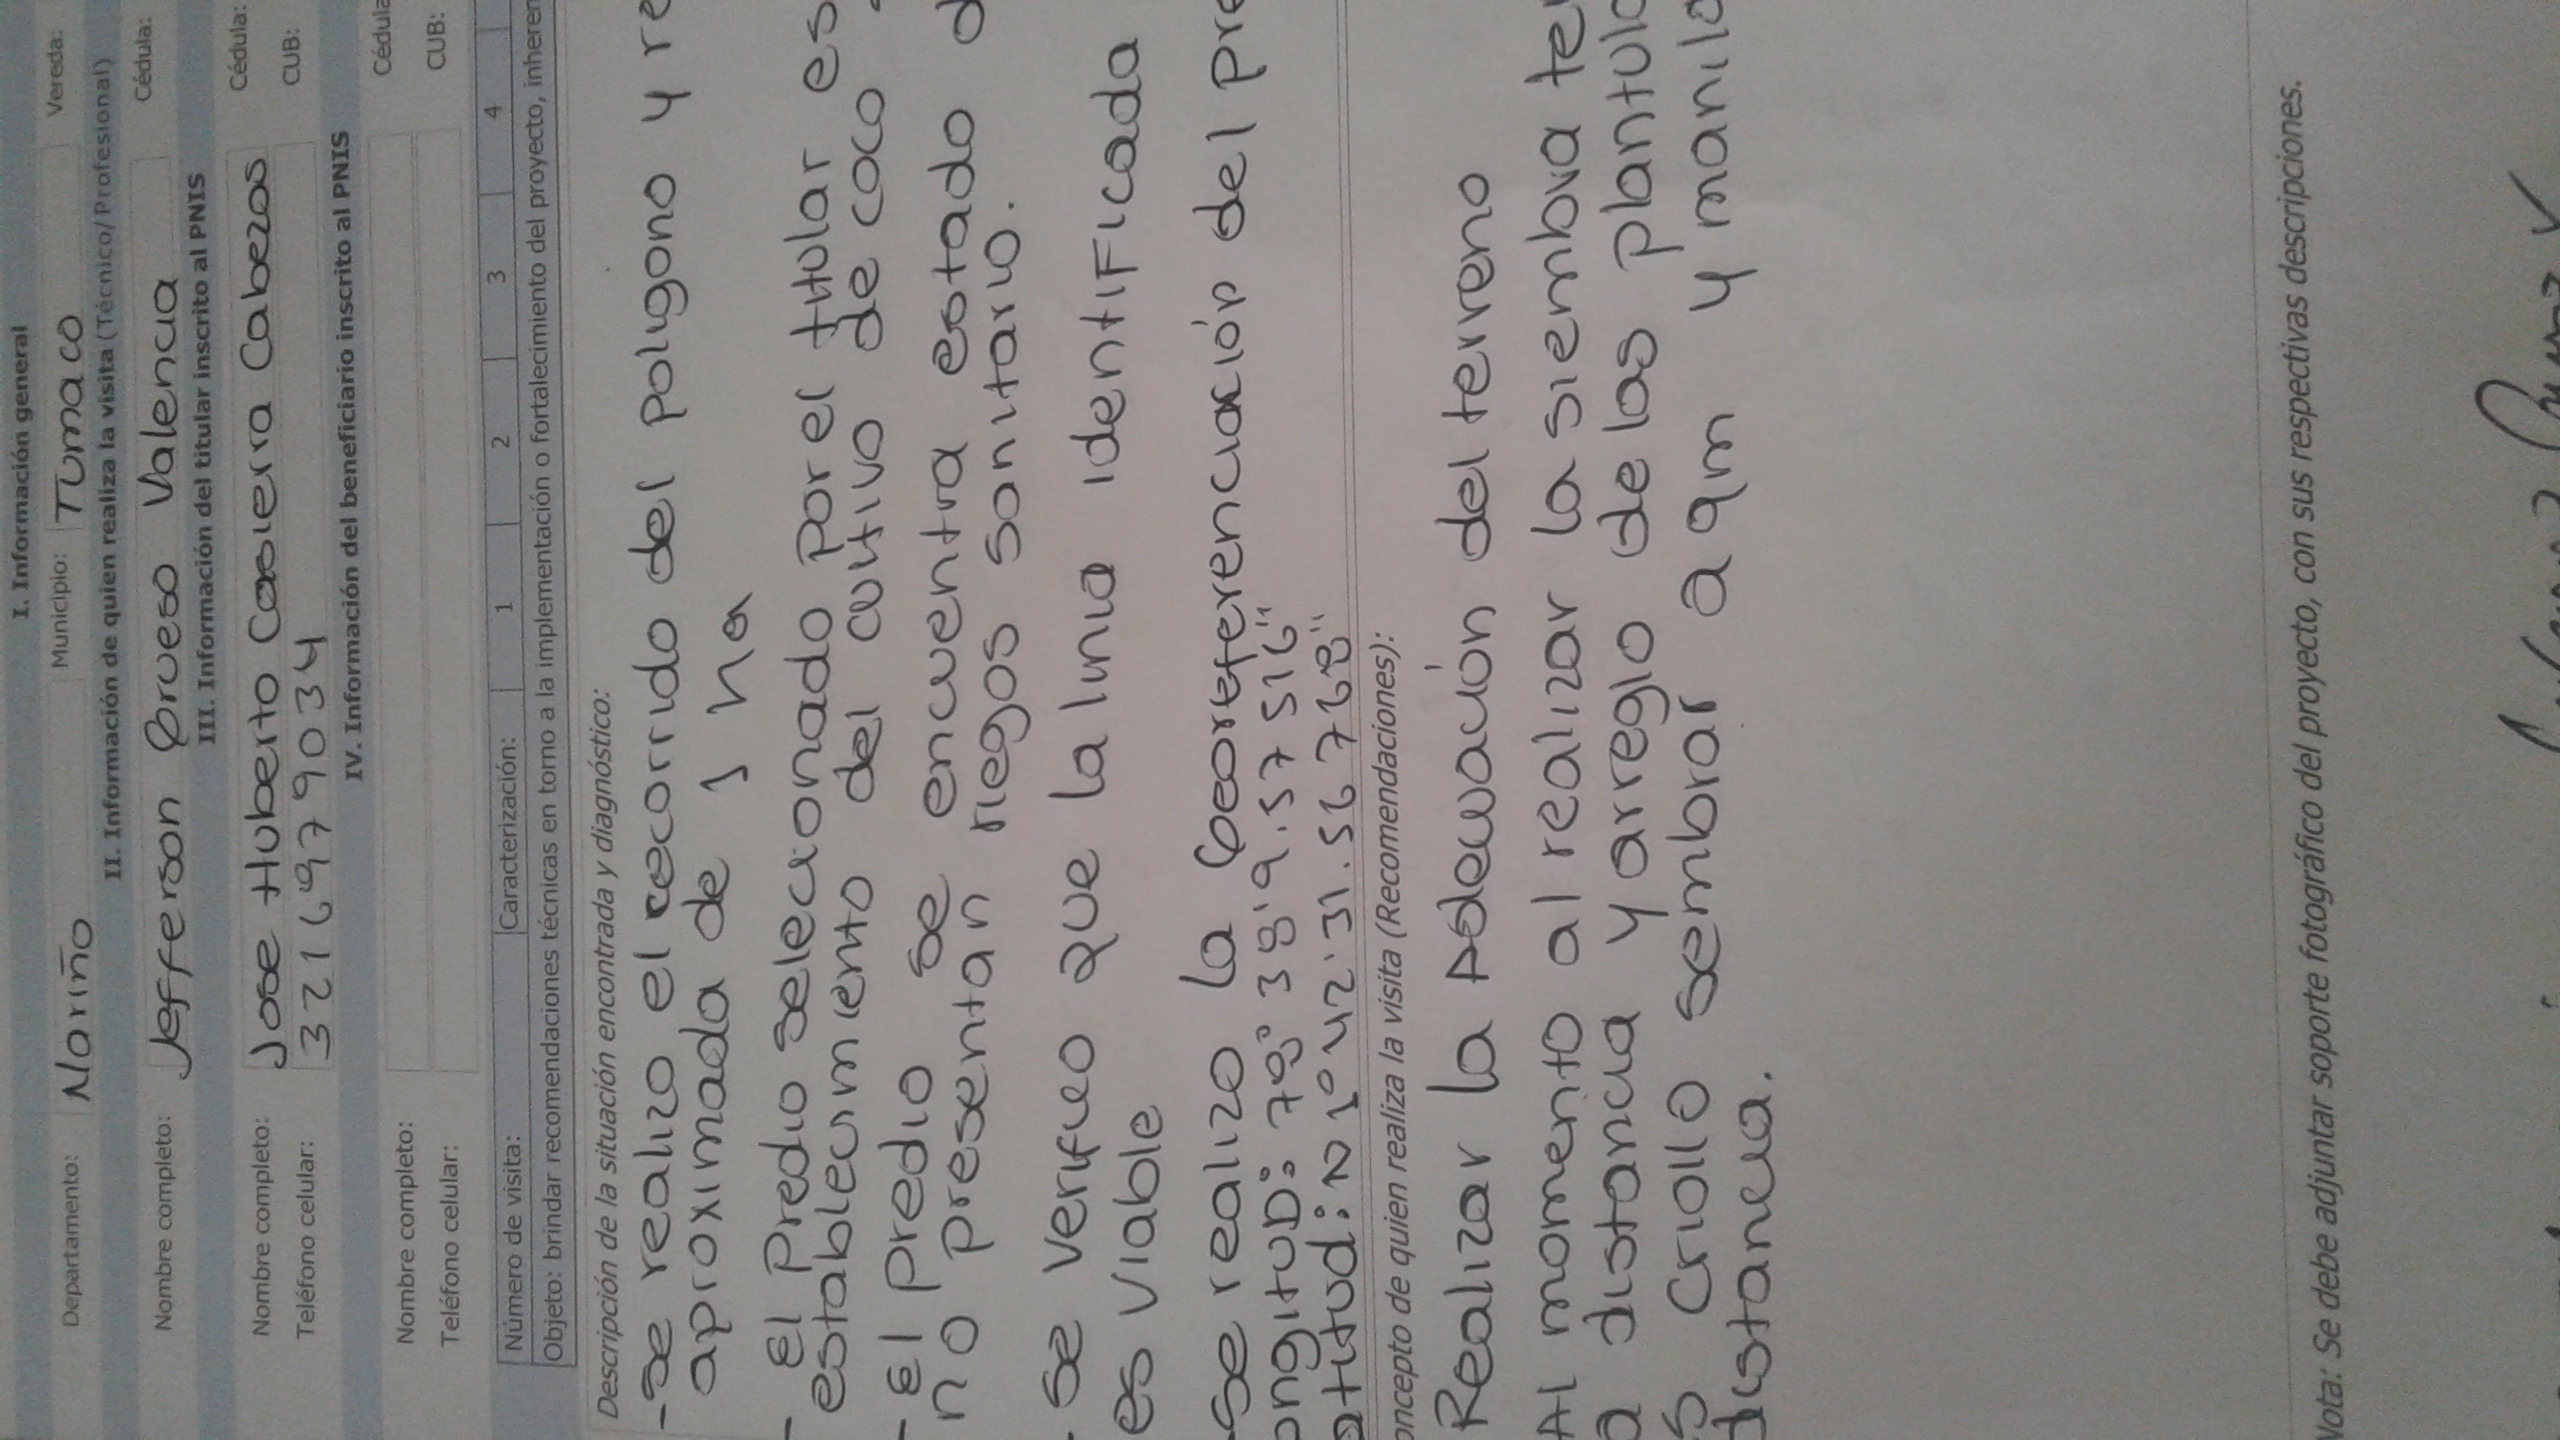 I. Información general
Departamento: Nariño Municipio: Tumaco Vereda:
II. Información de quien realiza la visita (Técnico/Profesional)
Nombre completo: Jefferson Orueso Valencia Cédula:
III. Información del titular inscrito al PNIS
Nombre completo: Jose Huberto Casierra Cabezas Cédula:
Teléfono celular: 3216979034 CUB:
IV. Información del beneficiario inscrito al PNIS
Nombre completo: Cédula
Teléfono celular: CUB:
Número de visita: Caracterización: 1 2 3 4
Objeto: brindar recomendaciones técnicas en torno a la implementación o fortalecimiento del proyecto, inheren
Descripción de la situación encontrada y diagnóstico:
-Se realizo el recorrido del poligono y re
aproximada de 1 ha
- El Predio seleccionado por el titular es
establecimiento del cultivo de coco
- El predio se encuentra estado d
no presentan riegos sanitario.
- Se verifico que la linia identificada
es viable
-Se realizo la Georeferenciación del pre
ongitud: 78° 38'9.57516"
atitud: N 1° 42' 31.56768"
oncepto de quien realiza la visita (Recomendaciones):
Realizar la Adecuación del terreno
Al momento al realizar la siembra te
a distancia y arreglo de las plantula
s criollo sembrar a 9m y manila
distancia.
Nota: Se debe adjuntar soporte fotográfico del proyecto, con sus respectivas descripciones.